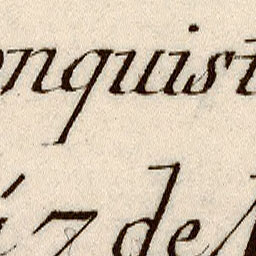 onquist
á 7 de